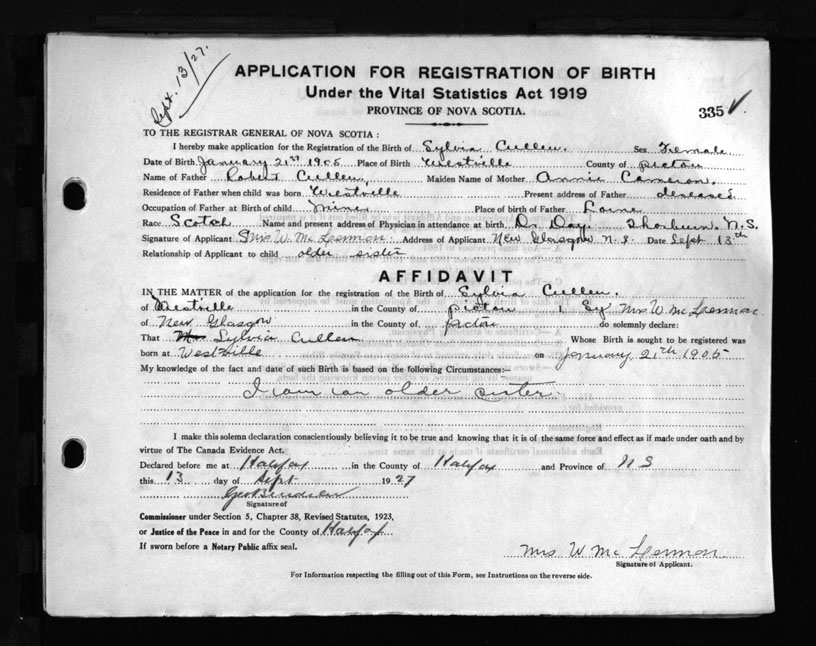 Sept. 13/27.
APPLICATION FOR REGISTRATION OF BIRTH
Under the Vital Statistics Act 1919
PROVINCE OF NOVA SCOTIA.
335
TO THE REGISTRAR GENERAL OF NOVA SCOTIA :
I hereby make application for the Registration of the Birth of Sylvia Cullen. Sex Female
Date of Birth January 21st 1905 Place of Birth Westville County of pictou
Name of Father Robert Cullen, Maiden Name of Mother Annie Cameron.
Residence of Father when child was born Westville Present address of Father diseased
Occupation of Father at Birth of child miner Place of birth of Father Lorne
Race Scotch Name and present address of Physician in attendance at birth Dr Day Thorburn N.S.
Signature of Applicant Mrs W. Mc Lennon Address of Applicant New Glasgow N.S. Date Sept 13th
Relationship of Applicant to child older sister
AFFIDAVIT
IN THE MATTER of the application for the registration of the Birth of Sylvia Cullen.
of Westville in the County of pictou I, Mrs W Mc Lennon
of New Glasgow in the County of pictou do solemnly declare:
That Sylvia Cullen Whose Birth is sought to be registered was
born at Westville on January 21th 1905
My knowledge of the fact and date of such Birth is based on the following Circumstances:—
I am an older sister.
I make this solemn declaration conscientiously believing it to be true and knowing that it is of the same force and effect as if made under oath and by
virtue of The Canada Evidence Act.
Declared before me at Halifax in the County of Halifax and Province of N S
this 13 day of Sept 1927
Signature of
Commissioner under Section 5, Chapter 38, Revised Statutes, 1923,
or Justice of the Peace in and for the County of Halifax
If sworn before a Notary Public affix seal.
Mrs W Mc Lennon.
Signature of Applicant.
For Information respecting the filling out of this Form, see Instructions on the reverse side.